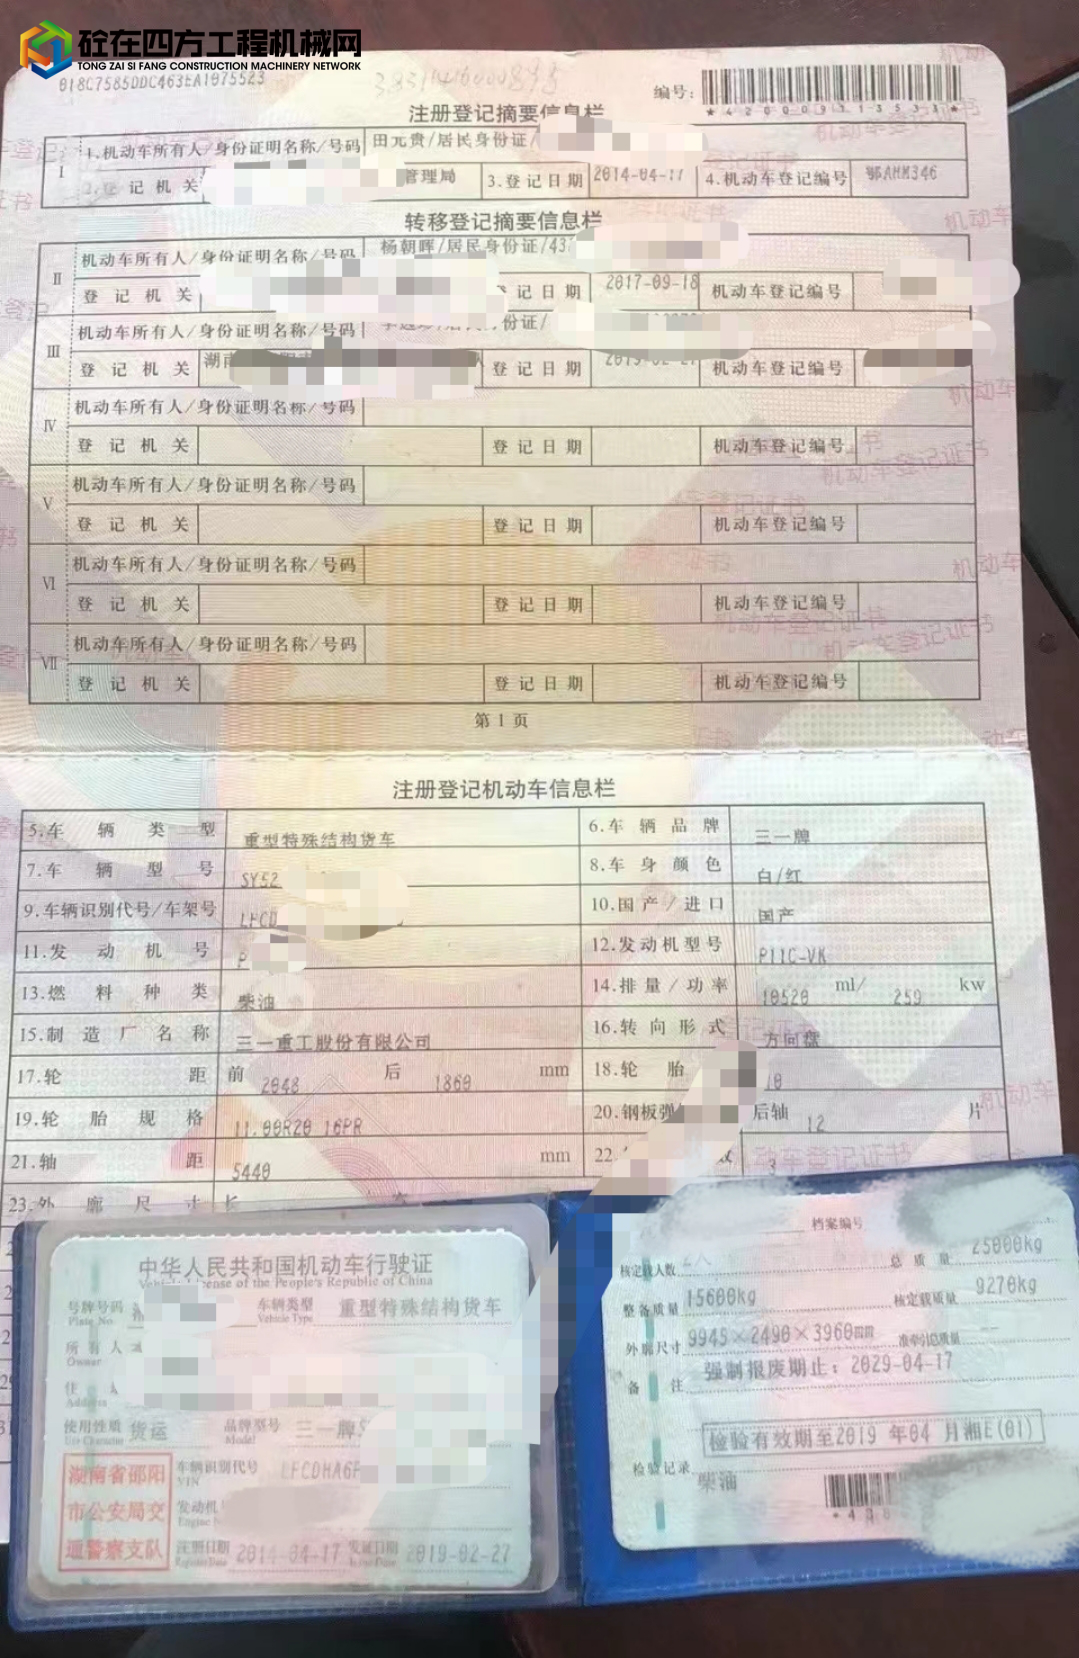 砼在四方工程机械网
TONG ZAI SI FANG CONSTRUCTION MACHINERY NETWORK
018C7585DDC463EA1075523
编号:
*420009313533*
注册登记摘要信息栏
I 1.机动车所有人/身份证明名称/号码 田元贵/居民身份证/
2.登记机关 管理局 3.登记日期 2014-04-17 4.机动车登记编号 鄂AMM346
转移登记摘要信息栏
II 机动车所有人/身份证明名称/号码 杨朝晖/居民身份证/43
登记机关 登记日期 2017-09-18 机动车登记编号
III 机动车所有人/身份证明名称/号码 份证/
登记机关 湖南 登记日期 2019-02-27 机动车登记编号
IV 机动车所有人/身份证明名称/号码
登记机关 登记日期 机动车登记编号
V 机动车所有人/身份证明名称/号码
登记机关 登记日期 机动车登记编号
VI 机动车所有人/身份证明名称/号码
登记机关 登记日期 机动车登记编号
VII 机动车所有人/身份证明名称/号码
登记机关 登记日期 机动车登记编号
第1页
注册登记机动车信息栏
5.车辆类型 重型特殊结构货车 6.车辆品牌 三一牌
7.车辆型号 SY52 8.车身颜色 白/红
9.车辆识别代号/车架号 LFCD 10.国产/进口 国产
11.发动机号 P 12.发动机型号 P11C-VK
13.燃料种类 柴油 14.排量/功率 10520 ml/ 259 kw
15.制造厂名称 三一重工股份有限公司 16.转向形式 方向盘
17.轮距 前 2048 后 1860 mm 18.轮胎 10
19.轮胎规格 11.00R20 16PR 20.钢板弹 后轴 12 片
21.轴距 5440 mm 22. 数 3
23.外廓尺寸 长
中华人民共和国机动车行驶证
Vehicle License of the People's Republic of China
号牌号码 Plate No. 车辆类型 Vehicle Type 重型特殊结构货车
所有人 Owner
住 Address
使用性质 Use Character 货运 品牌型号 Model 三一牌S
湖南省邵阳市公安局交通警察支队
车辆识别代号 VIN LFCDHA6P
发动机 Engine
注册日期 Register Date 2014-04-17 发证日期 Issue Date 2019-02-27
档案编号
核定载人数 总质量 25000kg
整备质量 15600kg 核定载质量 9270kg
外廓尺寸 9945×2490×3960 准牵引总质量 --
备注 强制报废期止:2029-04-17
检验有效期至2019年04月湘E(01)
检验记录
柴油